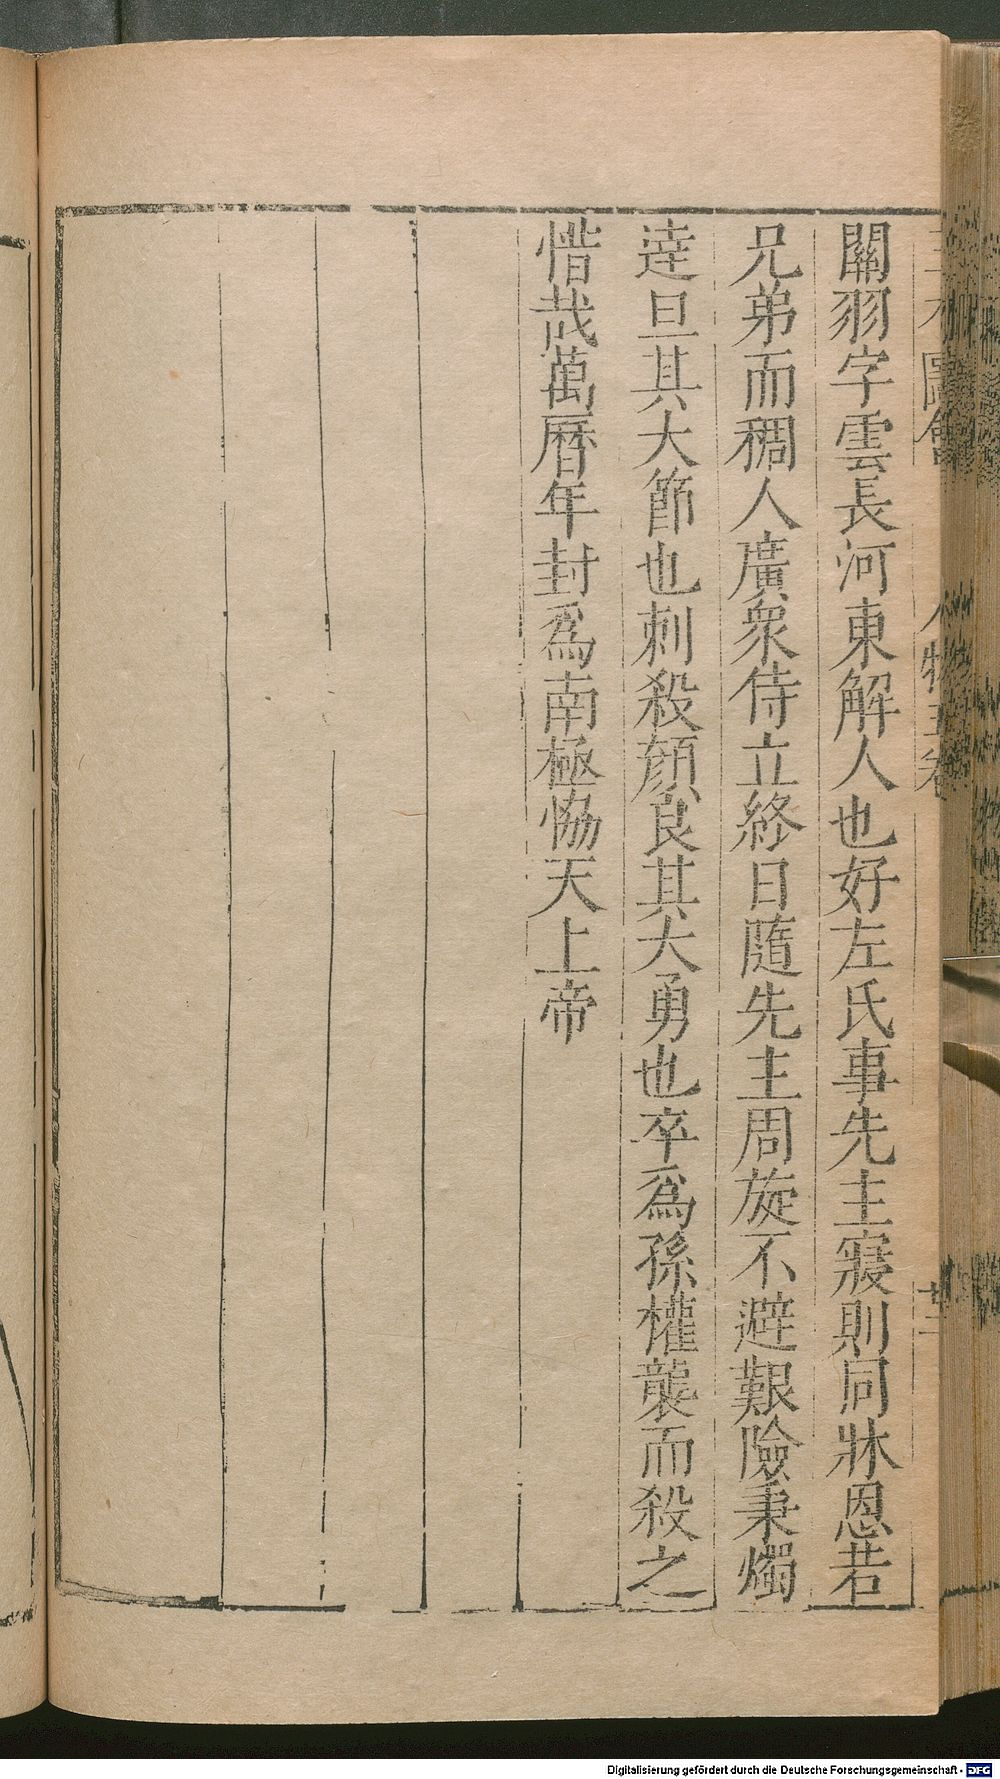 關羽字雲長河東解人也好左氏事先主寢則同牀恩若
兄弟而稠人廣衆侍立終日隨先主周旋不避艱險秉燭
達旦其大節也刺殺顔良其大勇也卒爲孫權襲而殺之
惜哉萬曆年封爲南極恊天上帝
圖會 人物五卷
Digitalisierung gefördert durch die Deutsche Forschungsgemeinschaft - DFG